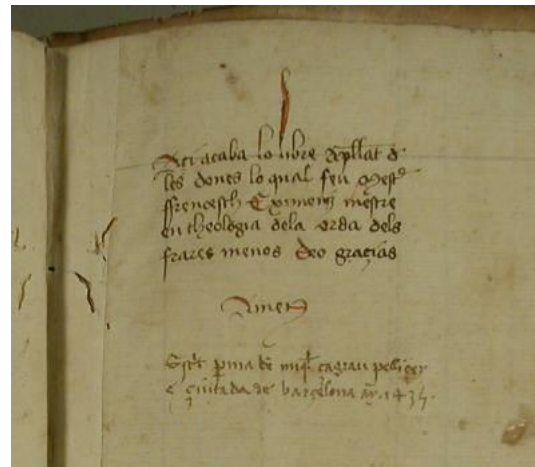 Aci acaba lo libre apellat d
les dones lo qual feu Mestre
ffrancesch Eximeniz mestre
en theologia dela orda dels
frares menos Deo gracias
Amen
Escrit p ma de miql çagrau peliçer
e çiutada de barçelona ay 143